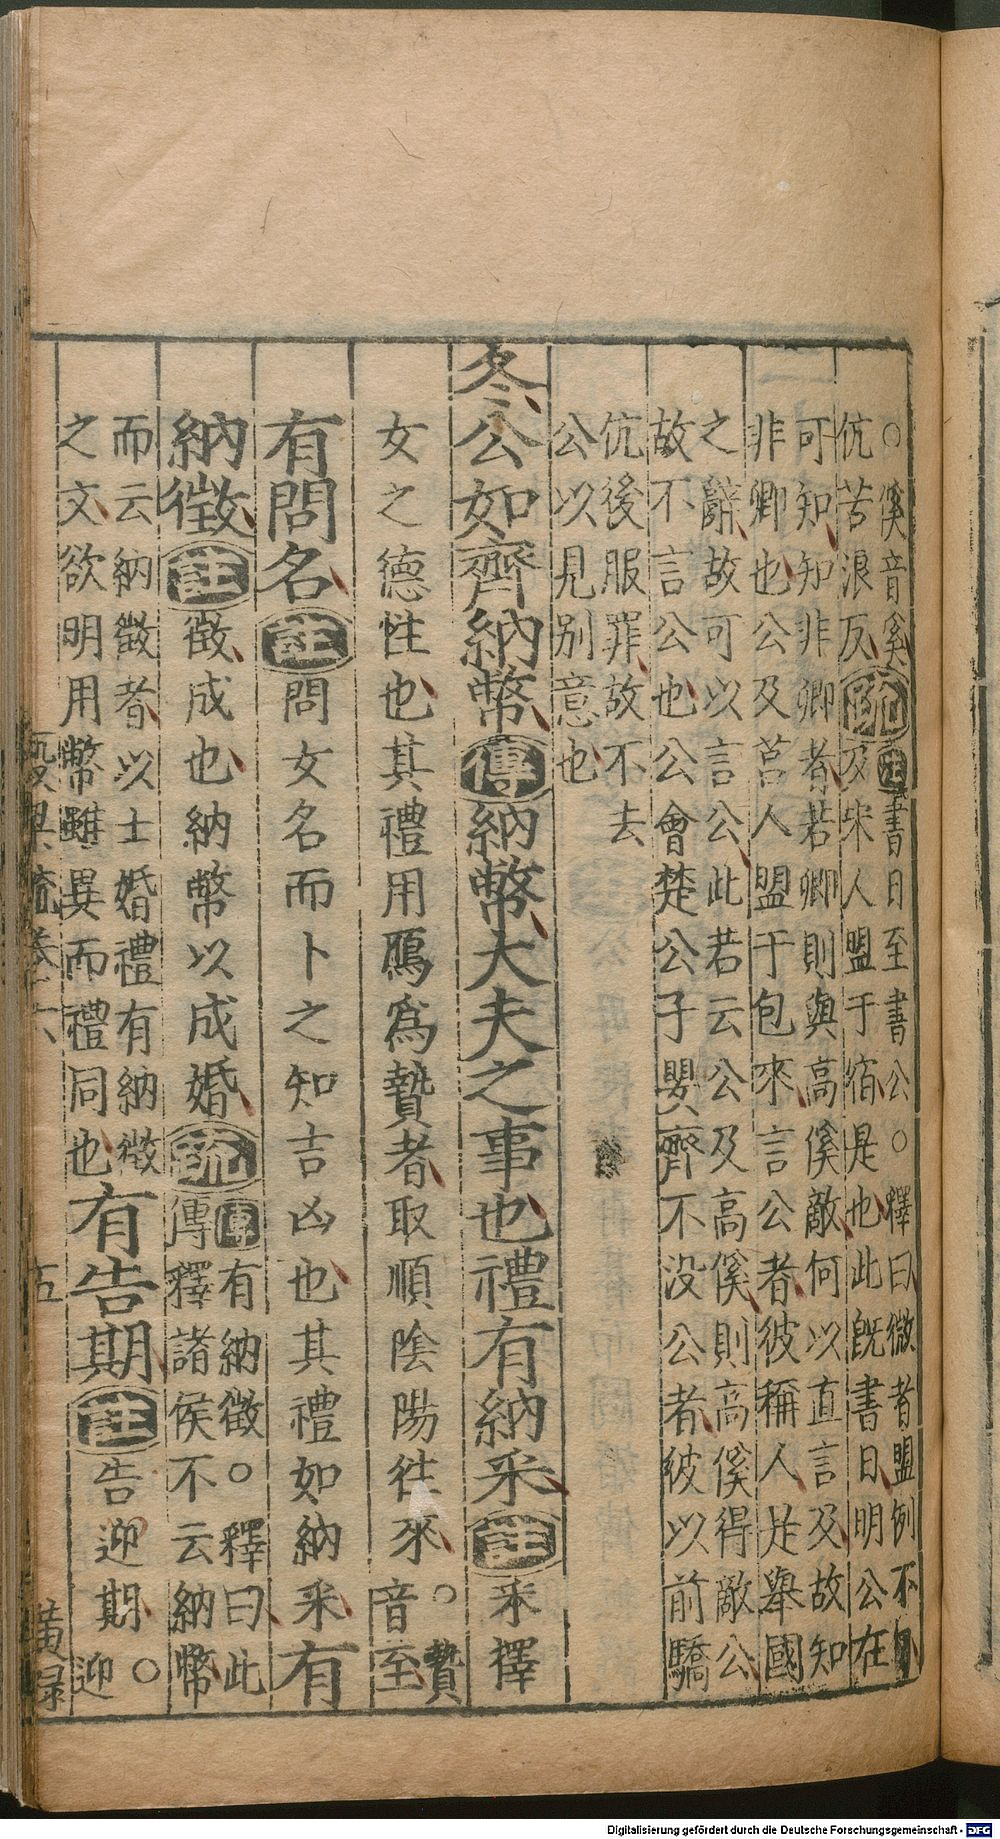 ○傒音奚
伉苦浪反疏
注書日至書公○釋曰微者盟例不日
及宋人盟于宿是也此既書日明公在
可知知非卿者若卿則與高傒敵何以直言及故知
非卿也公及莒人盟于包來言公者彼稱人是舉國
之辭故可以言公此若云公及高傒則高傒得敵公
故不言公也公會楚公子嬰齊不没公者彼以前驕
伉後服罪故不去
公以見別意也
冬公如齊納幣傳納幣大夫之事也禮有納采註采擇
女之德性也其禮用鴈為贄者取順陰陽往來○贄
音至
有問名註問女名而卜之知吉凶也其禮如納采有
納徵註徵成也納幣以成婚疏
傳有納徵○釋曰此
傳釋諸侯不云納幣
而云納徵者以士婚禮有納徵
之文欲明用幣雖異而禮同也有告期註告迎期○
迎
榖梁疏卷六
五
黃録
Digitalisierung gefördert durch die Deutsche Forschungsgemeinschaft - DFG